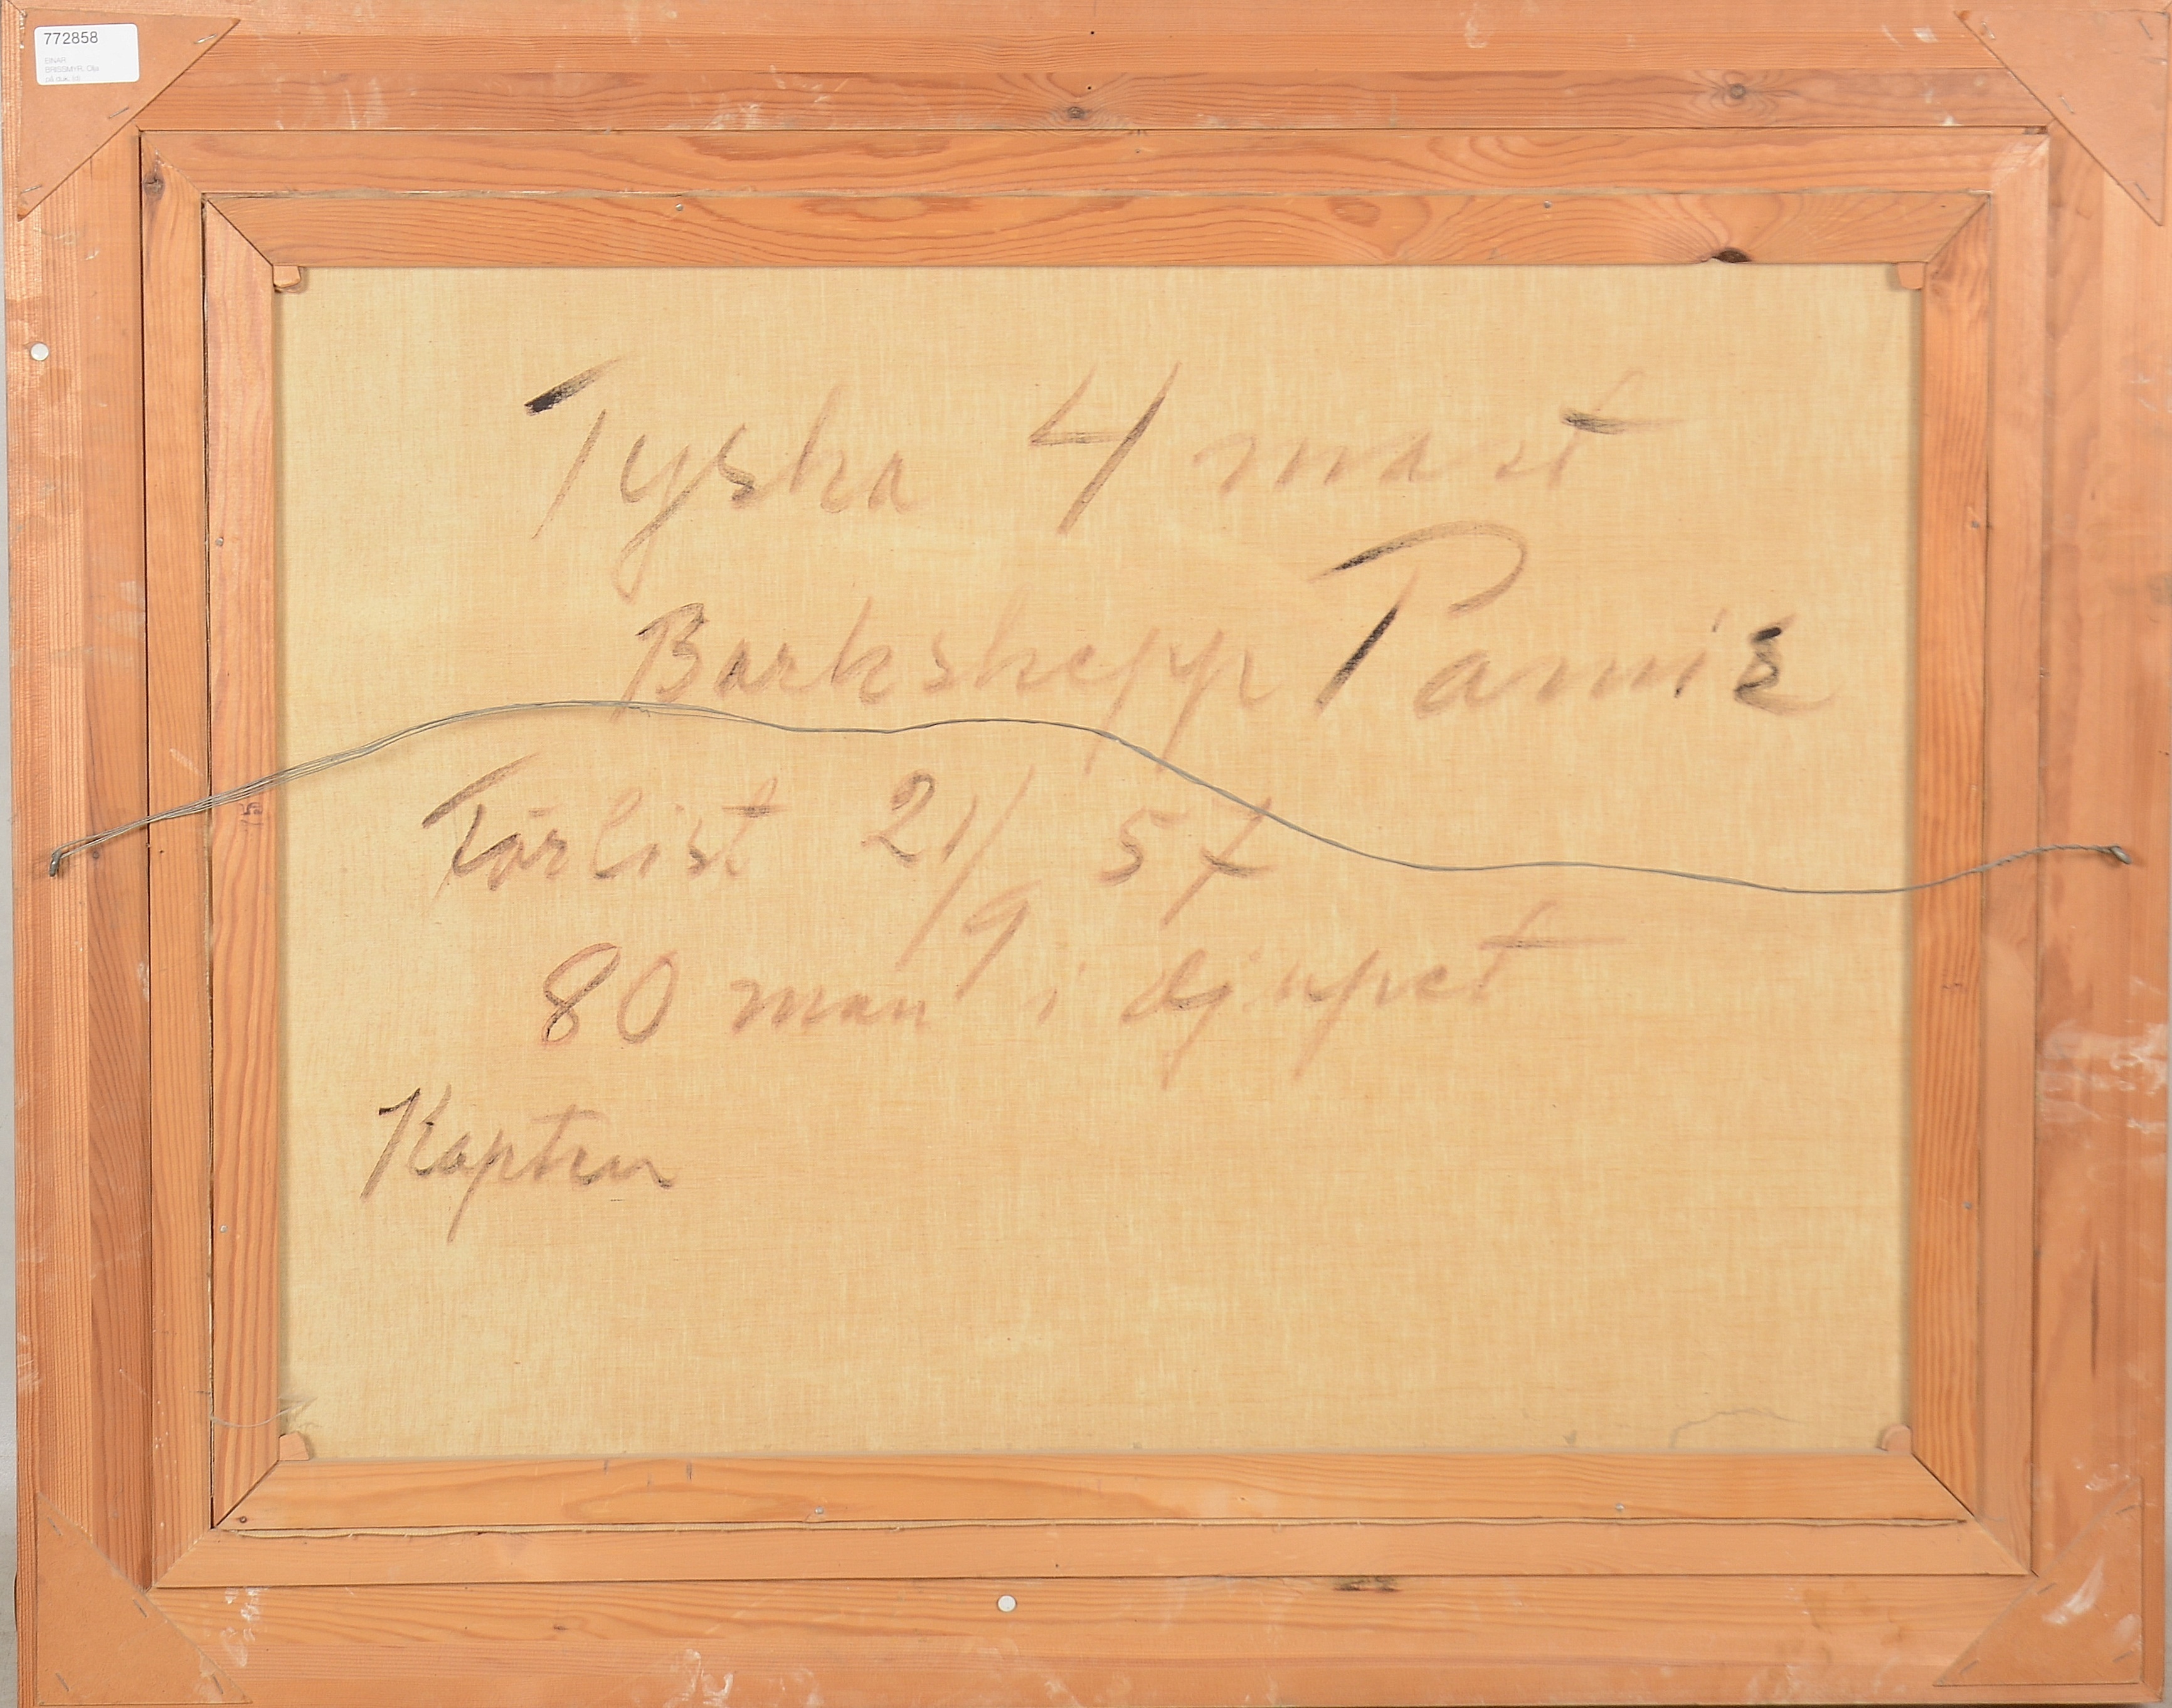 772858
EINAR
BRISSMYR, Olja
på duk, s
Tyska 4 mast
Barkskepp Pamis
Förlist 21/9 57
80 man i djupet
Kapten